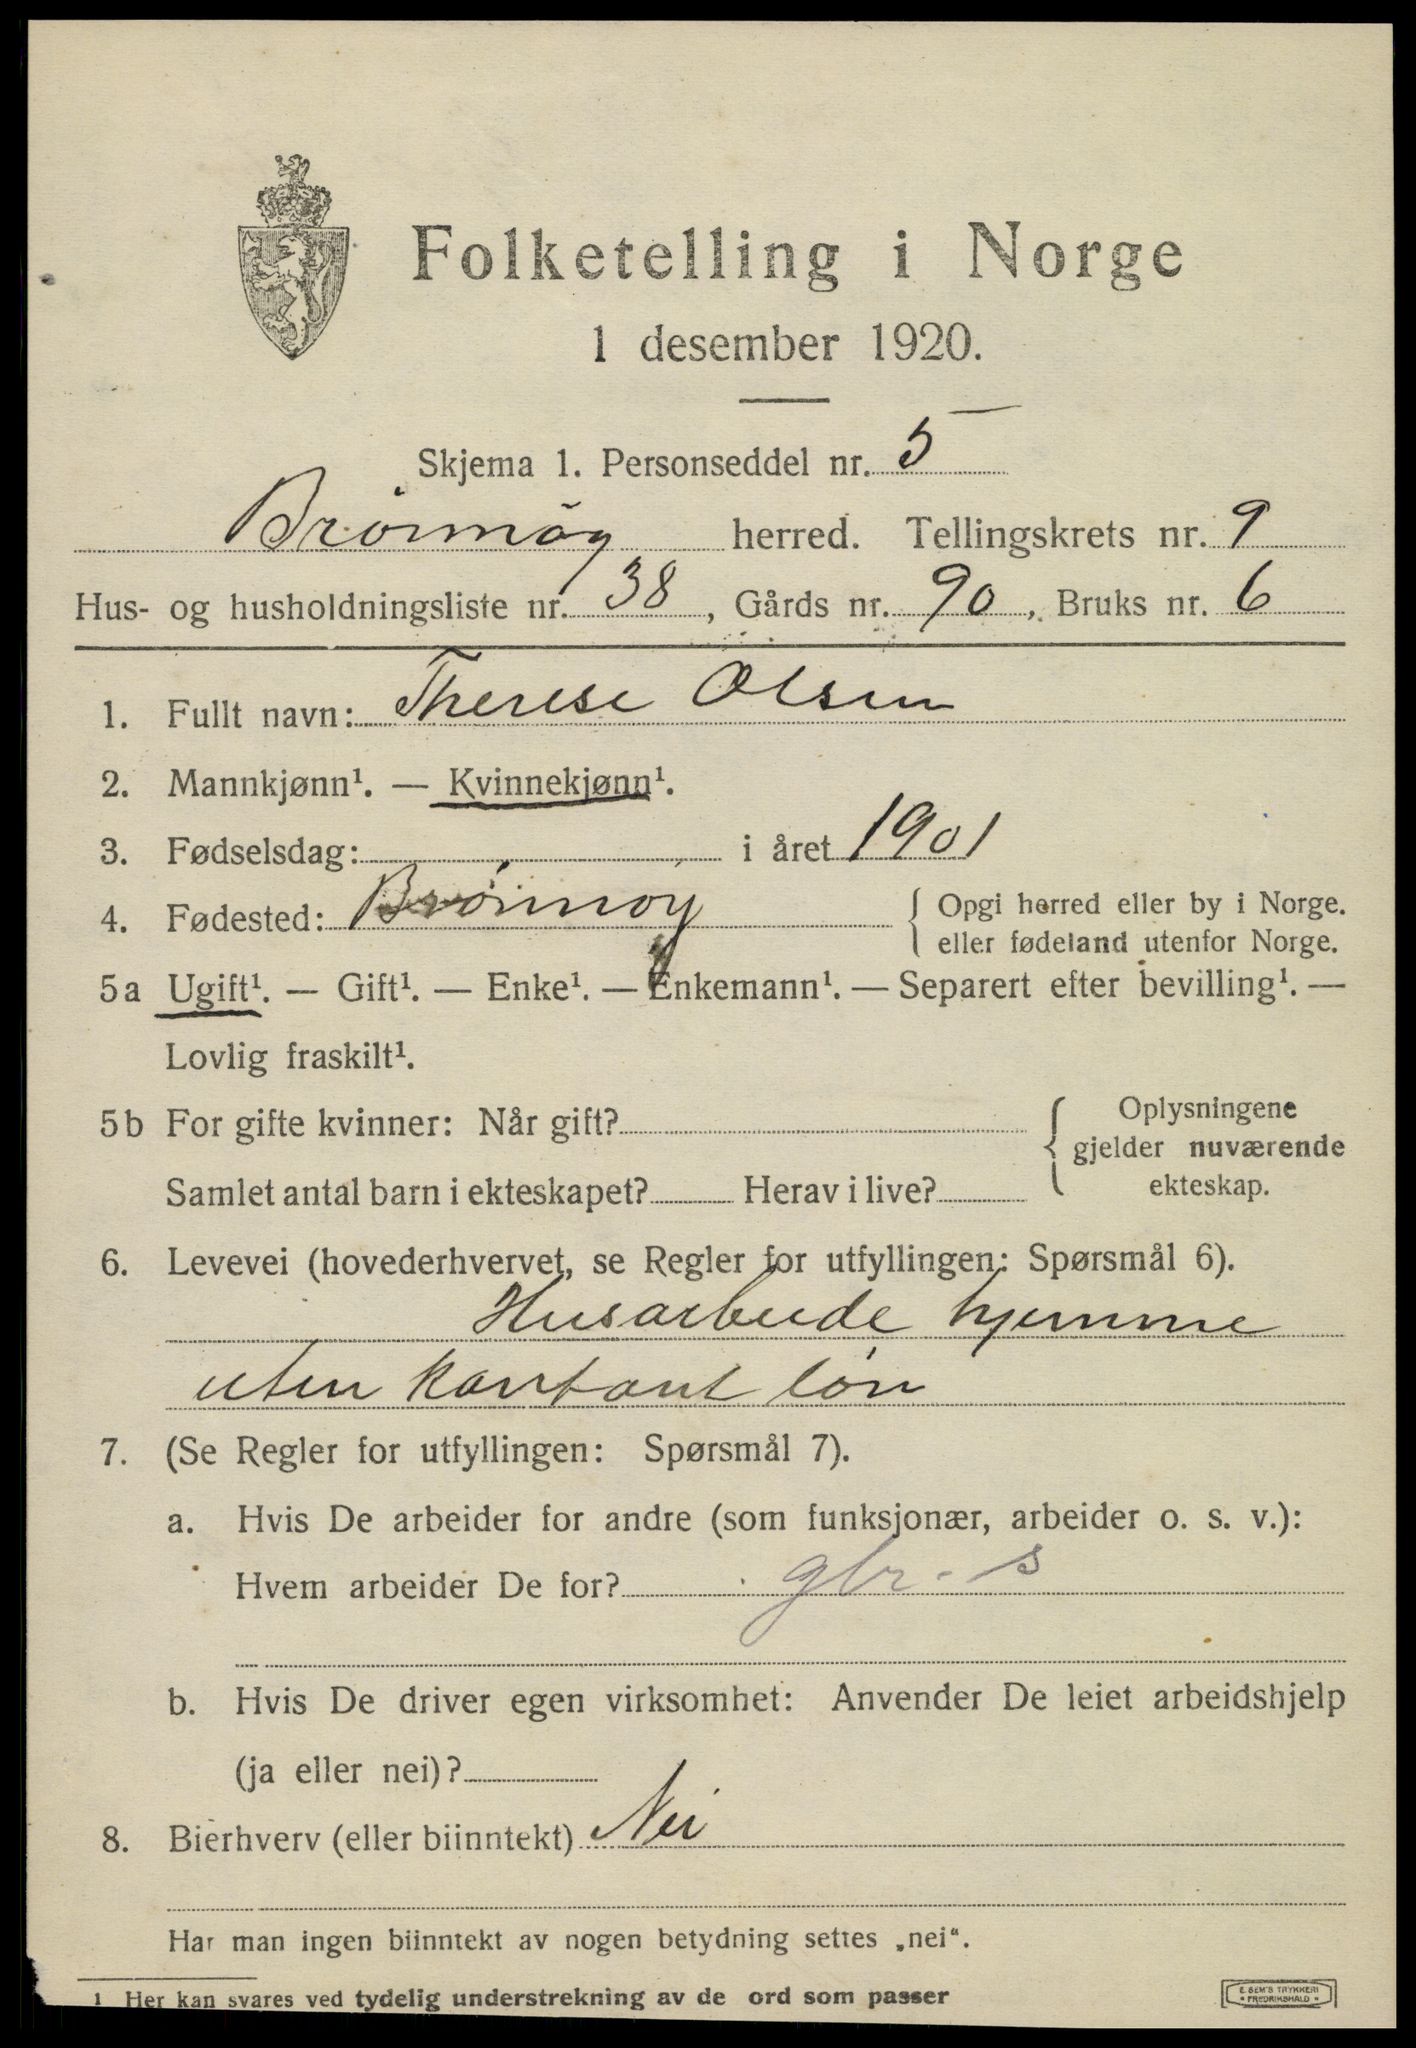 Folketelling i Norge
1 desember 1920.
Skjema 1. Personseddel nr. 5
Brønnøy herred. Tellingskrets nr. 9
Hus- og husholdningsliste nr. 38, Gårds nr. 90, Bruks nr. 6
1. Fullt navn: Therese Olsen
2. Mannkjønn¹. — Kvinnekjønn¹.
3. Fødselsdag: i året 1901
4. Fødested: Brønnøy { Opgi herred eller by i Norge.
eller fødeland utenfor Norge.
5a Ugift¹. — Gift¹. — Enke¹. — Enkemann¹. — Separert efter bevilling¹. —
Lovlig fraskilt¹.
5b For gifte kvinner: Når gift? { Oplysningene
gjelder nuværende
Samlet antal barn i ekteskapet? Herav i live? ekteskap.
6. Levevei (hovederhvervet, se Regler for utfyllingen: Spørsmål 6).
Husarbeide hjemme
uten kontant løn
7. (Se Regler for utfyllingen: Spørsmål 7).
a. Hvis De arbeider for andre (som funksjonær, arbeider o. s. v.):
Hvem arbeider De for? gbr. - s
b. Hvis De driver egen virksomhet: Anvender De leiet arbeidshjelp
(ja eller nei)?
8. Bierhverv (eller biinntekt) Nei
Har man ingen biinntekt av nogen betydning settes „nei“.
1 Her kan svares ved tydelig understrekning av de ord som passer
E. SEM'S TRYKKERI
FREDRIKSHALD